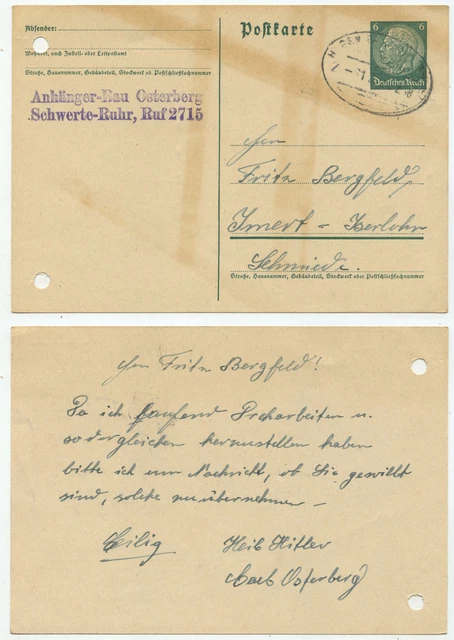 Absender:
Postkarte
6 6
Deutsches Reich
Wohnort, auch Zustell- oder Leitpostamt
Straße, Hausnummer, Gebäudeteil, Stockwerk od. Postschließfachnummer
Anhänger-Bau Osterberg
Schwerte-Ruhr, Ruf 2715
Herrn
Fritz Bergfeld,
Imert = Iserlohn
Schmiede.
Straße, Hausnummer, Gebäudeteil, Stockwerk oder Postschließfachnummer
Herrn Fritz Bergfeld!
Da ich laufend Dreharbeiten u.
so dergleichen herzustellen haben
bitte ich um Nachricht, ob Sie gewillt
sind, solche zu übernehmen –
Eilig Heil Hitler
Osterberg